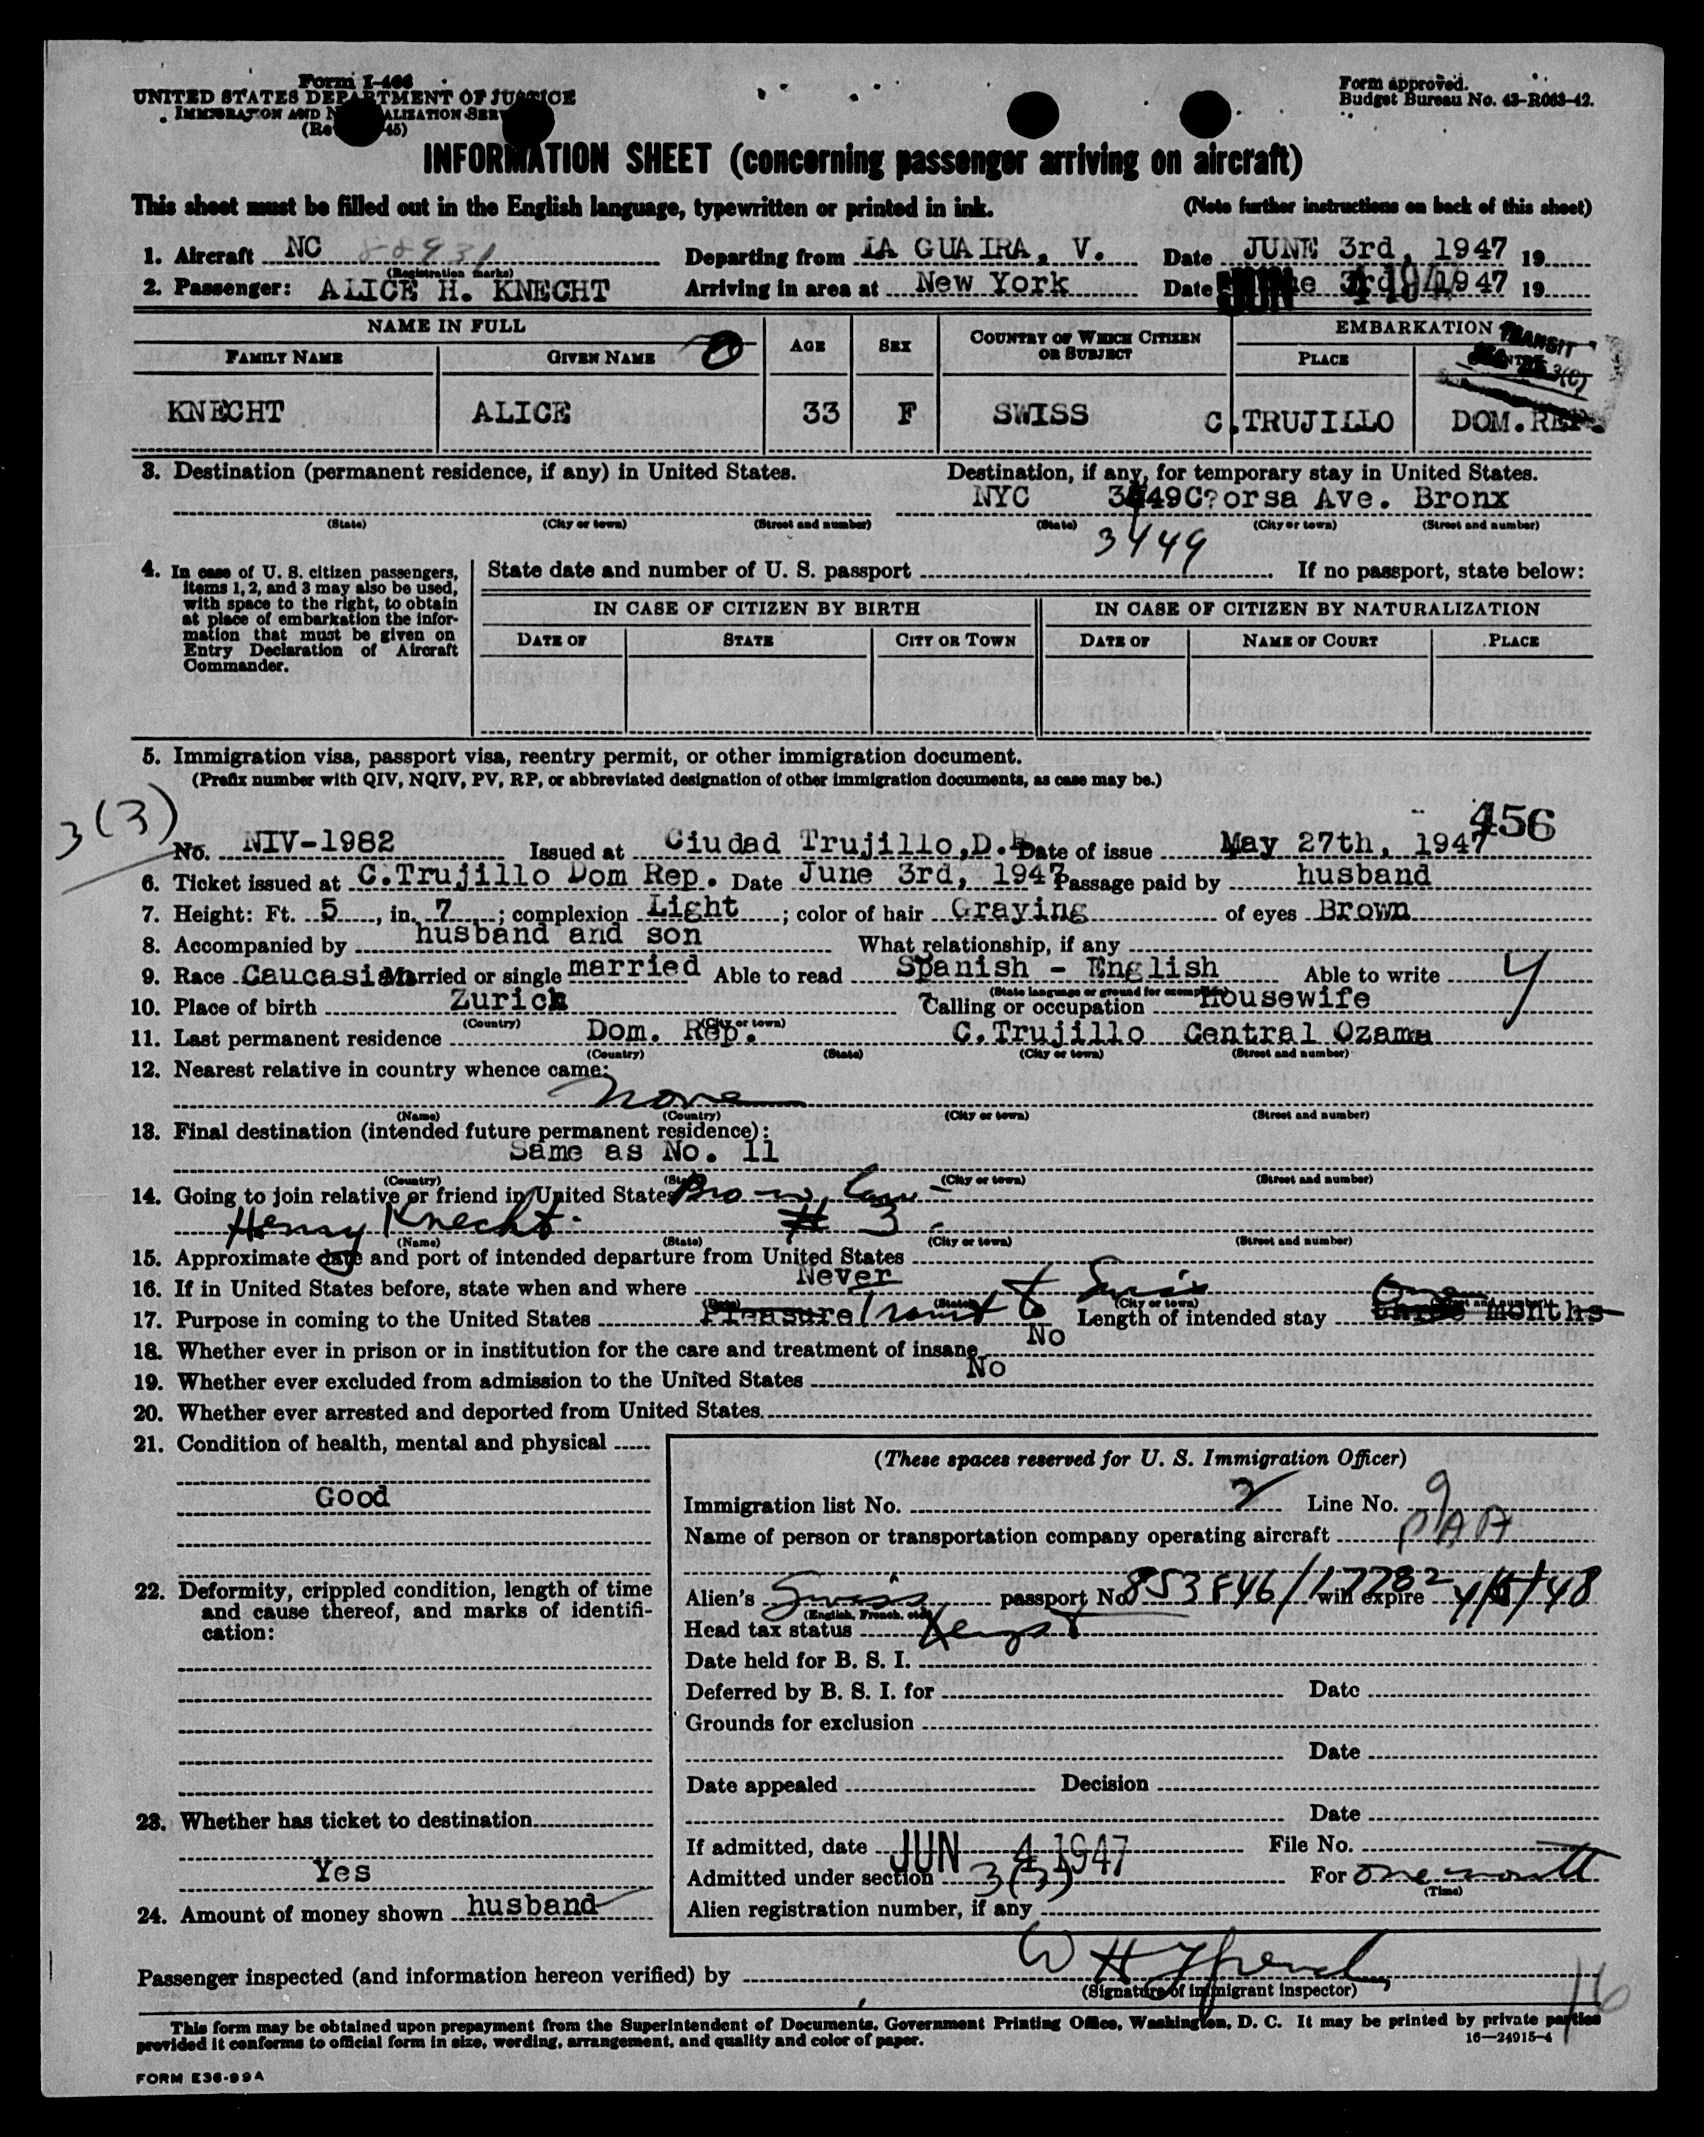 Form I-466
UNITED STATES DEPARTMENT OF JUSTICE
IMMIGRATION AND NATURALIZATION SERV
(Re 45)
Form approved.
Budget Bureau No. 43-R063-42.
INFORMATION SHEET (concerning passenger arriving on aircraft)
This sheet must be filled out in the English language, typewritten or printed in ink. (Note further instructions on back of this sheet)
1. Aircraft NC 88931 Departing from LA GUAIRA, V. Date JUNE 3rd, 1947 19
(Registration marks)
2. Passenger: ALICE H. KNECHT Arriving in area at New York Date 3rd 1947 19
NAME IN FULL
FAMILY NAME GIVEN NAME AGE SEX COUNTRY OF WHICH CITIZEN OR SUBJECT EMBARKATION PLACE
TRANSIT
3(C)
KNECHT ALICE 33 F SWISS C.TRUJILLO DOM.REP.
3. Destination (permanent residence, if any) in United States. Destination, if any, for temporary stay in United States.
NYC 3449C?orsa Ave. Bronx
(State) (City or town) (Street and number) (State) (City or town) (Street and number)
3449
4. In case of U. S. citizen passengers, items 1, 2, and 3 may also be used, with space to the right, to obtain at place of embarkation the information that must be given on Entry Declaration of Aircraft Commander.
State date and number of U. S. passport If no passport, state below:
IN CASE OF CITIZEN BY BIRTH IN CASE OF CITIZEN BY NATURALIZATION
DATE OF STATE CITY OR TOWN DATE OF NAME OF COURT PLACE
5. Immigration visa, passport visa, reentry permit, or other immigration document.
(Prefix number with QIV, NQIV, PV, RP, or abbreviated designation of other immigration documents, as case may be.)
3(3)
456
No. NIV-1982 Issued at Ciudad Trujillo,D.R. Date of issue May 27th, 1947
6. Ticket issued at C.Trujillo Dom Rep. Date June 3rd, 1947 Passage paid by husband
7. Height: Ft. 5, in. 7; complexion Light; color of hair Graying of eyes Brown
8. Accompanied by husband and son What relationship, if any
9. Race Caucasian Married or single married Able to read Spanish - English Able to write y
(State language or ground for exemption)
10. Place of birth Zurich Calling or occupation Housewife
(Country) (City or town)
11. Last permanent residence Dom. Rep. C.Trujillo Central Ozama
(Country) (State) (City or town) (Street and number)
12. Nearest relative in country whence came:
None
(Name) (Country) (City or town) (Street and number)
13. Final destination (intended future permanent residence):
Same as No. 11
(Country) (State) (City or town) (Street and number)
14. Going to join relative or friend in United States Bro-in-law -
Henry Knecht. # 3.
(Name) (State) (City or town) (Street and number)
15. Approximate date and port of intended departure from United States
16. If in United States before, state when and where Never
(Date) (State) (City or town) (Street and number)
17. Purpose in coming to the United States Pleasure Transit to Swiss Length of intended stay One three months
18. Whether ever in prison or in institution for the care and treatment of insane No
19. Whether ever excluded from admission to the United States No
20. Whether ever arrested and deported from United States.
21. Condition of health, mental and physical
Good
22. Deformity, crippled condition, length of time and cause thereof, and marks of identification:
23. Whether has ticket to destination
Yes
24. Amount of money shown husband
(These spaces reserved for U. S. Immigration Officer)
Immigration list No. 2 Line No. 9
Name of person or transportation company operating aircraft PAA
Alien's Swiss passport No. 853846/17282 will expire 4/5/48
(English, French, etc.)
Head tax status
Date held for B. S. I.
Deferred by B. S. I. for Date
Grounds for exclusion
Date
Date appealed Decision
Date
If admitted, date JUN 4 1947 File No.
Admitted under section 3(3) For one month
(Time)
Alien registration number, if any
Passenger inspected (and information hereon verified) by
(Signature of immigrant inspector)
16
This form may be obtained upon prepayment from the Superintendent of Documents, Government Printing Office, Washington, D. C. It may be printed by private parties
provided it conforms to official form in size, wording, arrangement, and quality and color of paper. 16—24915-4
FORM E36-99A